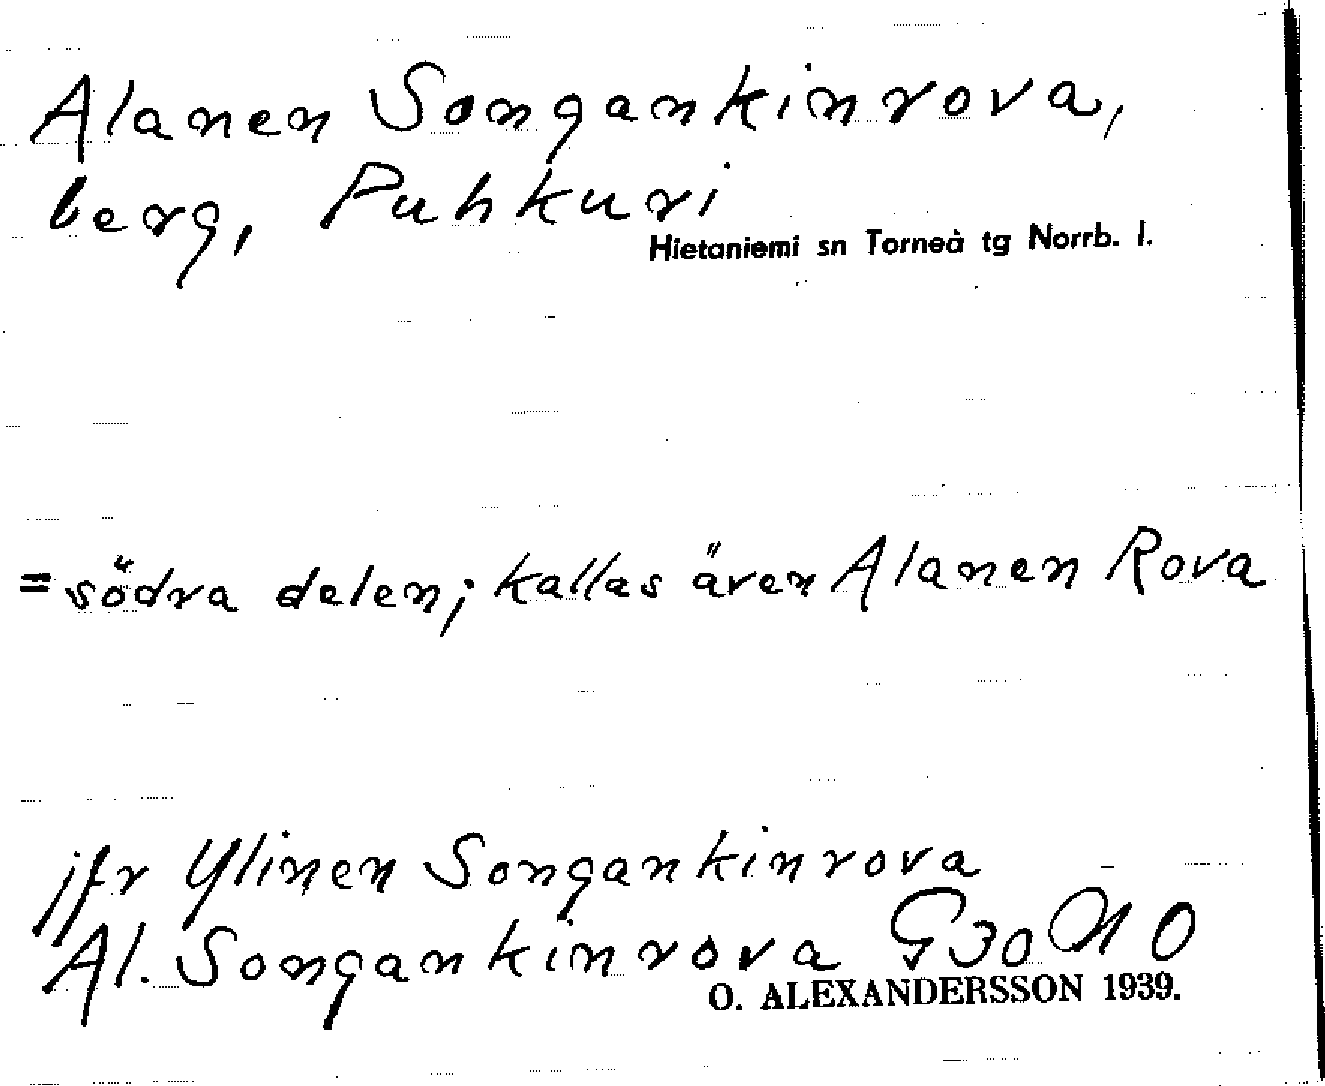 Alanen Songankinrova,
berg, Puhkuri
Hietaniemi sn Torneå tg Norrb. l.
= södra delen; kallas även Alanen Rova
jfr Ylinen Songankinrova
Al. Songankinrova G 30 N O
O. ALEXANDERSSON 1939.